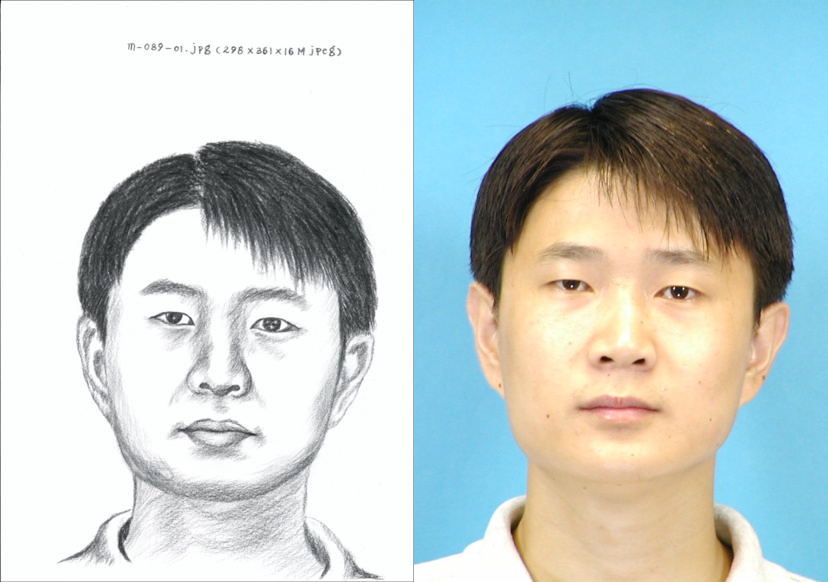 m-089-01.jpg (298×361×16M jpeg)